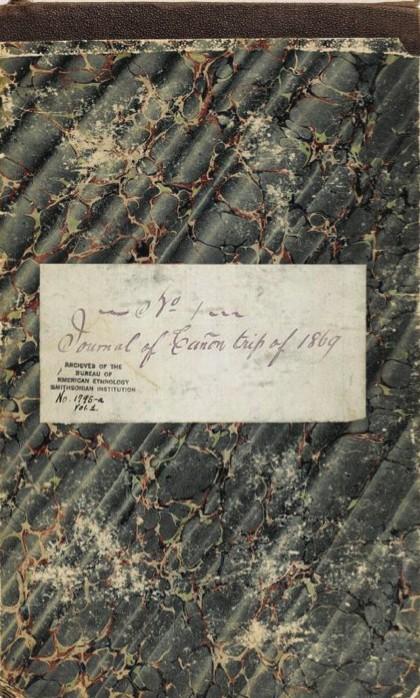 No. 1
Journal of Cañon trip of 1869
ARCHIVES OF THE
BUREAU OF
AMERICAN ETHNOLOGY
SMITHSONIAN INSTITUTION
No. 1795-a
Vol. 1.